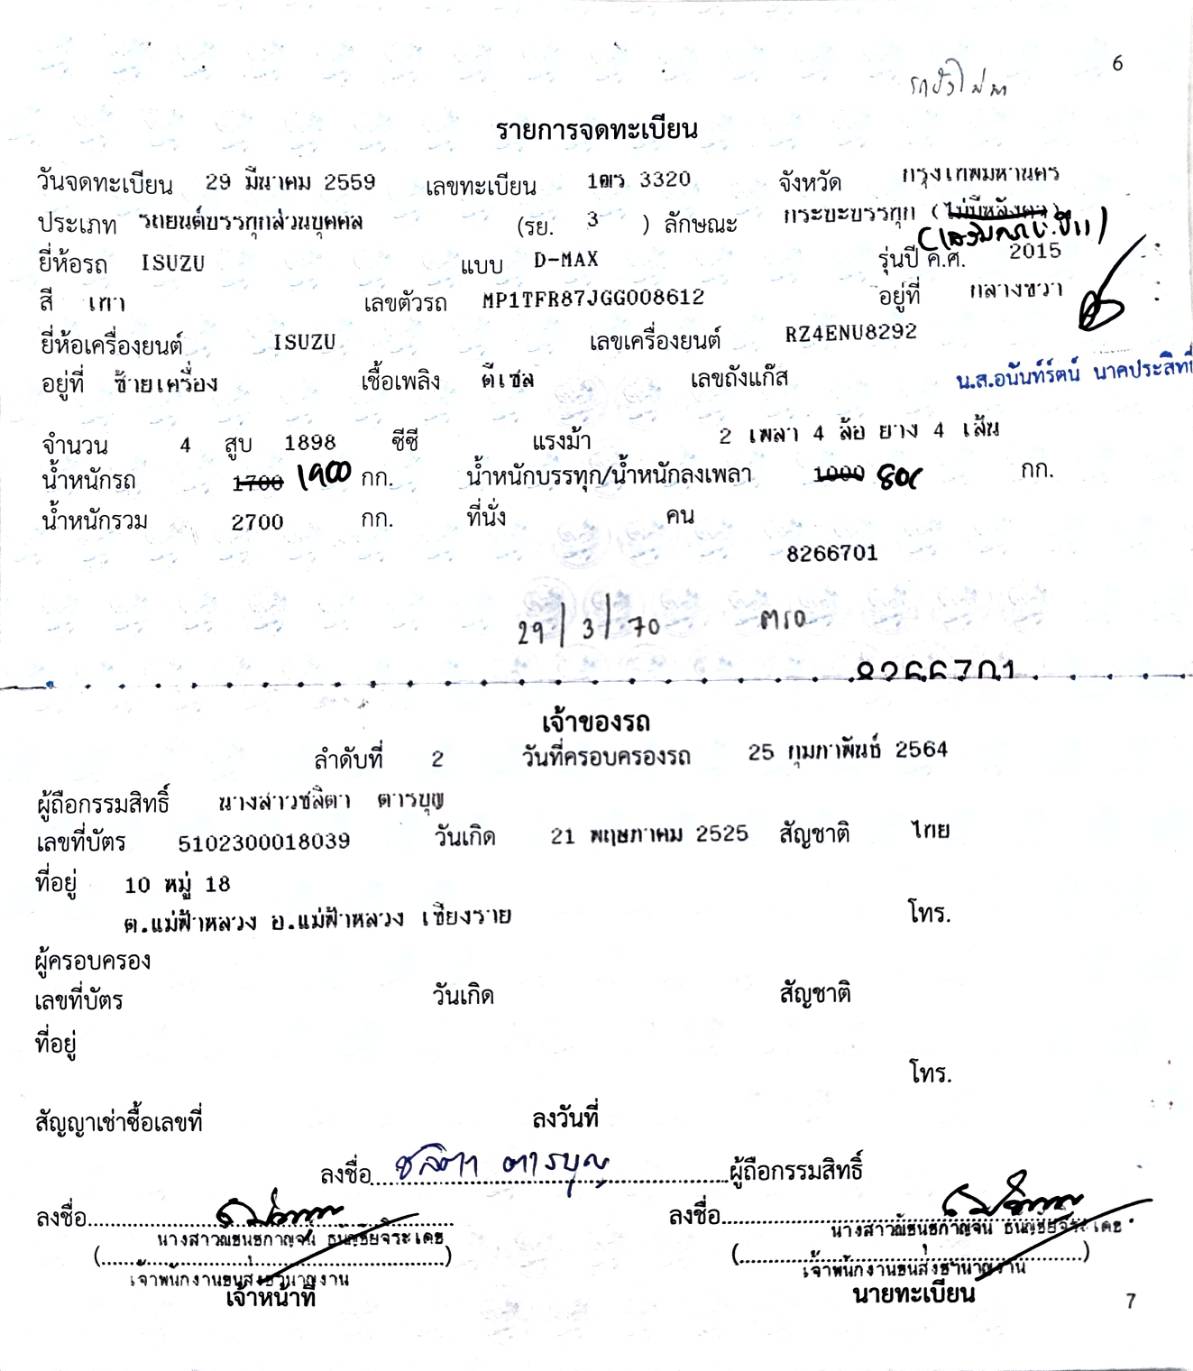 6
รายการจดทะเบียน
วันจดทะเบียน 29 มีนาคม 2559 เลขทะเบียน 1ฒร 3320 จังหวัด กรุงเทพมหานคร
ประเภท รถยนต์บรรทุกส่วนบุคคล (รย. 3 ) ลักษณะ กระบะบรรทุก (ไม่มีหลังคา)
ยี่ห้อรถ ISUZU แบบ D-MAX รุ่นปี ค.ศ. 2015
สี เทา เลขตัวรถ MP1TFR87JGG008612 อยู่ที่ กลางขวา
ยี่ห้อเครื่องยนต์ ISUZU เลขเครื่องยนต์ RZ4ENU8292
อยู่ที่ ซ้ายเครื่อง เชื้อเพลิง ดีเซล เลขถังแก๊ส
น.ส.อนันท์รัตน์ นาคประสิทธิ์
จำนวน 4 สูบ 1898 ซีซี แรงม้า 2 เพลา 4 ล้อ ยาง 4 เส้น
น้ำหนักรถ 1700 1900 กก. น้ำหนักบรรทุก/น้ำหนักลงเพลา 1000 800 กก.
น้ำหนักรวม 2700 กก. ที่นั่ง คน
8266701
29/3/70 ตรอ
8266701
เจ้าของรถ
ลำดับที่ 2 วันที่ครอบครองรถ 25 กุมภาพันธ์ 2564
ผู้ถือกรรมสิทธิ์ นางสาวชลิตา ตารบุญ
เลขที่บัตร 5102300018039 วันเกิด 21 พฤษภาคม 2525 สัญชาติ ไทย
ที่อยู่ 10 หมู่ 18
ต.แม่ฟ้าหลวง อ.แม่ฟ้าหลวง เชียงราย โทร.
ผู้ครอบครอง
เลขที่บัตร วันเกิด สัญชาติ
ที่อยู่
โทร.
สัญญาเช่าซื้อเลขที่ ลงวันที่
ลงชื่อ ชลิตา ตารบุญ ผู้ถือกรรมสิทธิ์
ลงชื่อ ลงชื่อ
เจ้าพนักงานขนส่งชำนาญงาน เจ้าพนักงานขนส่งชำนาญงาน
เจ้าหน้าที่ นายทะเบียน
7